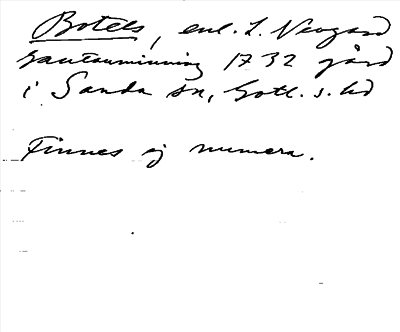 Botels, enl. L. Neogard
Gautauminning 1732 gård
i Sanda sn, Gotl. s. hd
Finnes ej numera.